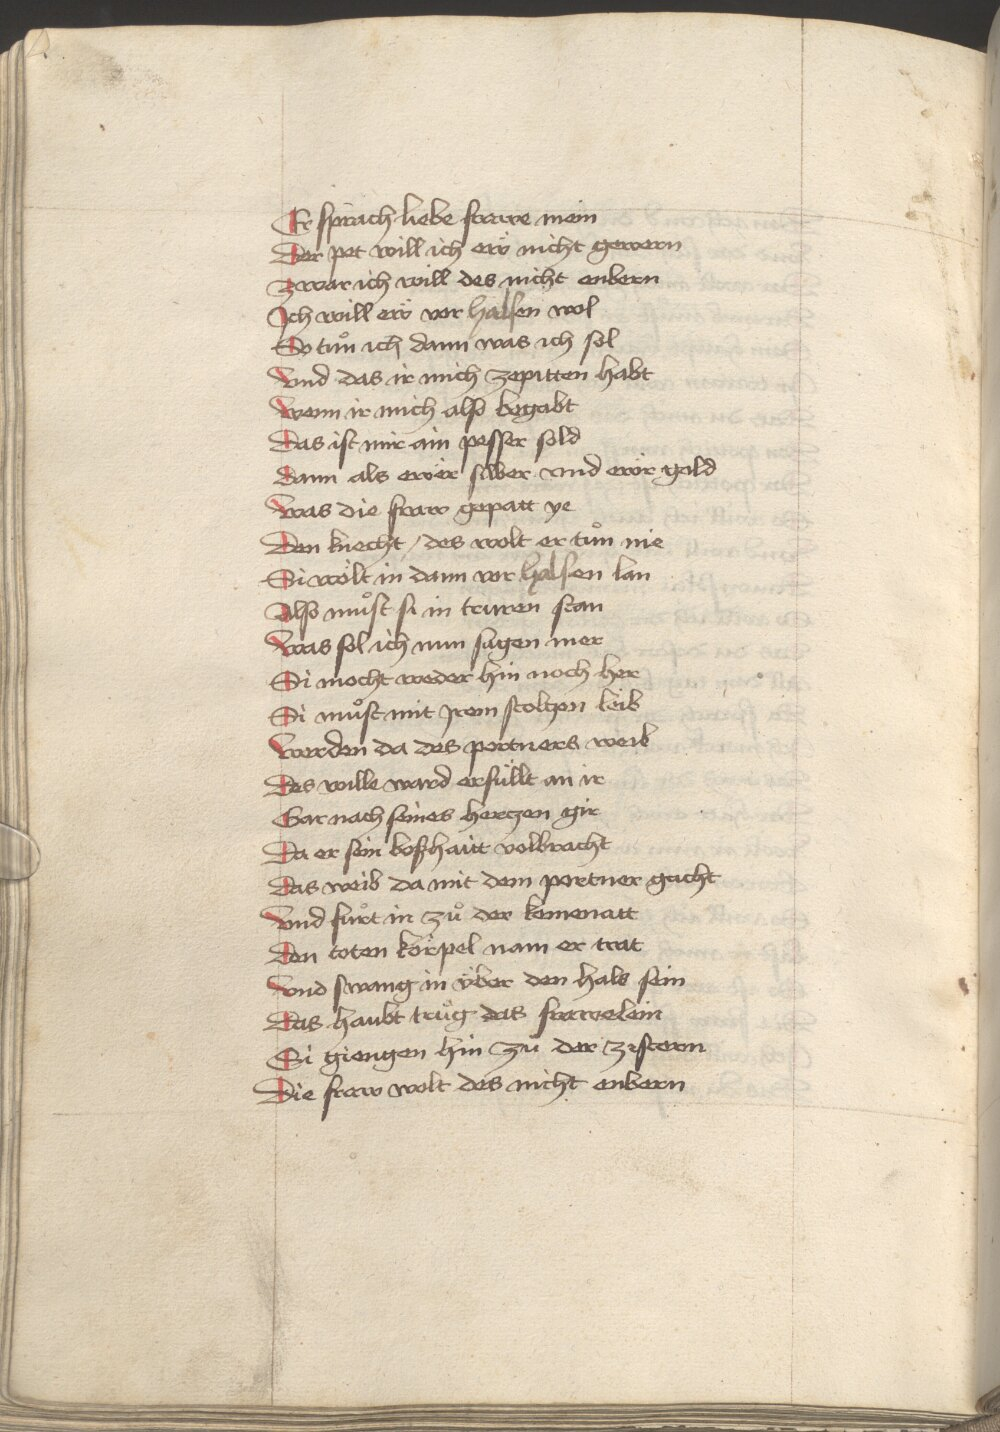 Er sprach liebe frawe mein
Der pet will ich eẅ nicht gewern
Zwar ich will des nicht enbern
Ich will eẅ vor halsen wol
So tuͦn ich dann was ich sol
Vnd das ir mich zepitten habt
Wenn ir mich also begabt
Das ist mir ain pesser sold
Dann als ewer silber vnd ewr gold
Was die fraw gepatt ye
Den knecht / des wolt er tuͦn nie
Si wölt in dann vor halsen lan
Also muͦst si in truren stan
Was sol ich nun sagen mer
Si mocht weder hin noch her
Si muͦst mit Jrem stoltzen leib
Werden da des portners weib
Des wille ward erfüllt an ir
Gar nach seines hertzen gir
Da er sein boßhaitt volbracht
Das weib da mit dem portner gacht
Vnd fuͦrt in zuͦ der kemenatt
Den toten körpel nam er trat
Vnd swang in v̈ber den hals sein
Das haubt truͦg das frawelein
Si giengen hin zu der zistern
Die fraw wolt des nicht enbern